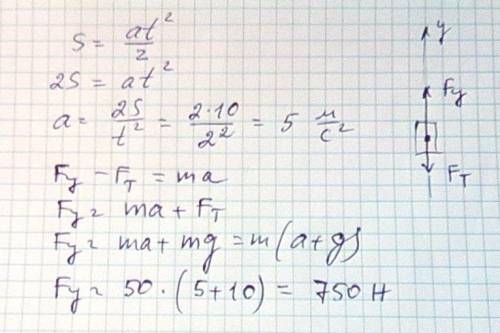 S = at²/2
2S = at²
a = 2S/t² = 2·10/2² = 5 м/с²
Fy - FT = ma
Fy = ma + FT
Fy = ma + mg = m(a+g)
Fy = 50·(5+10) = 750 Н
y
Fy
FT